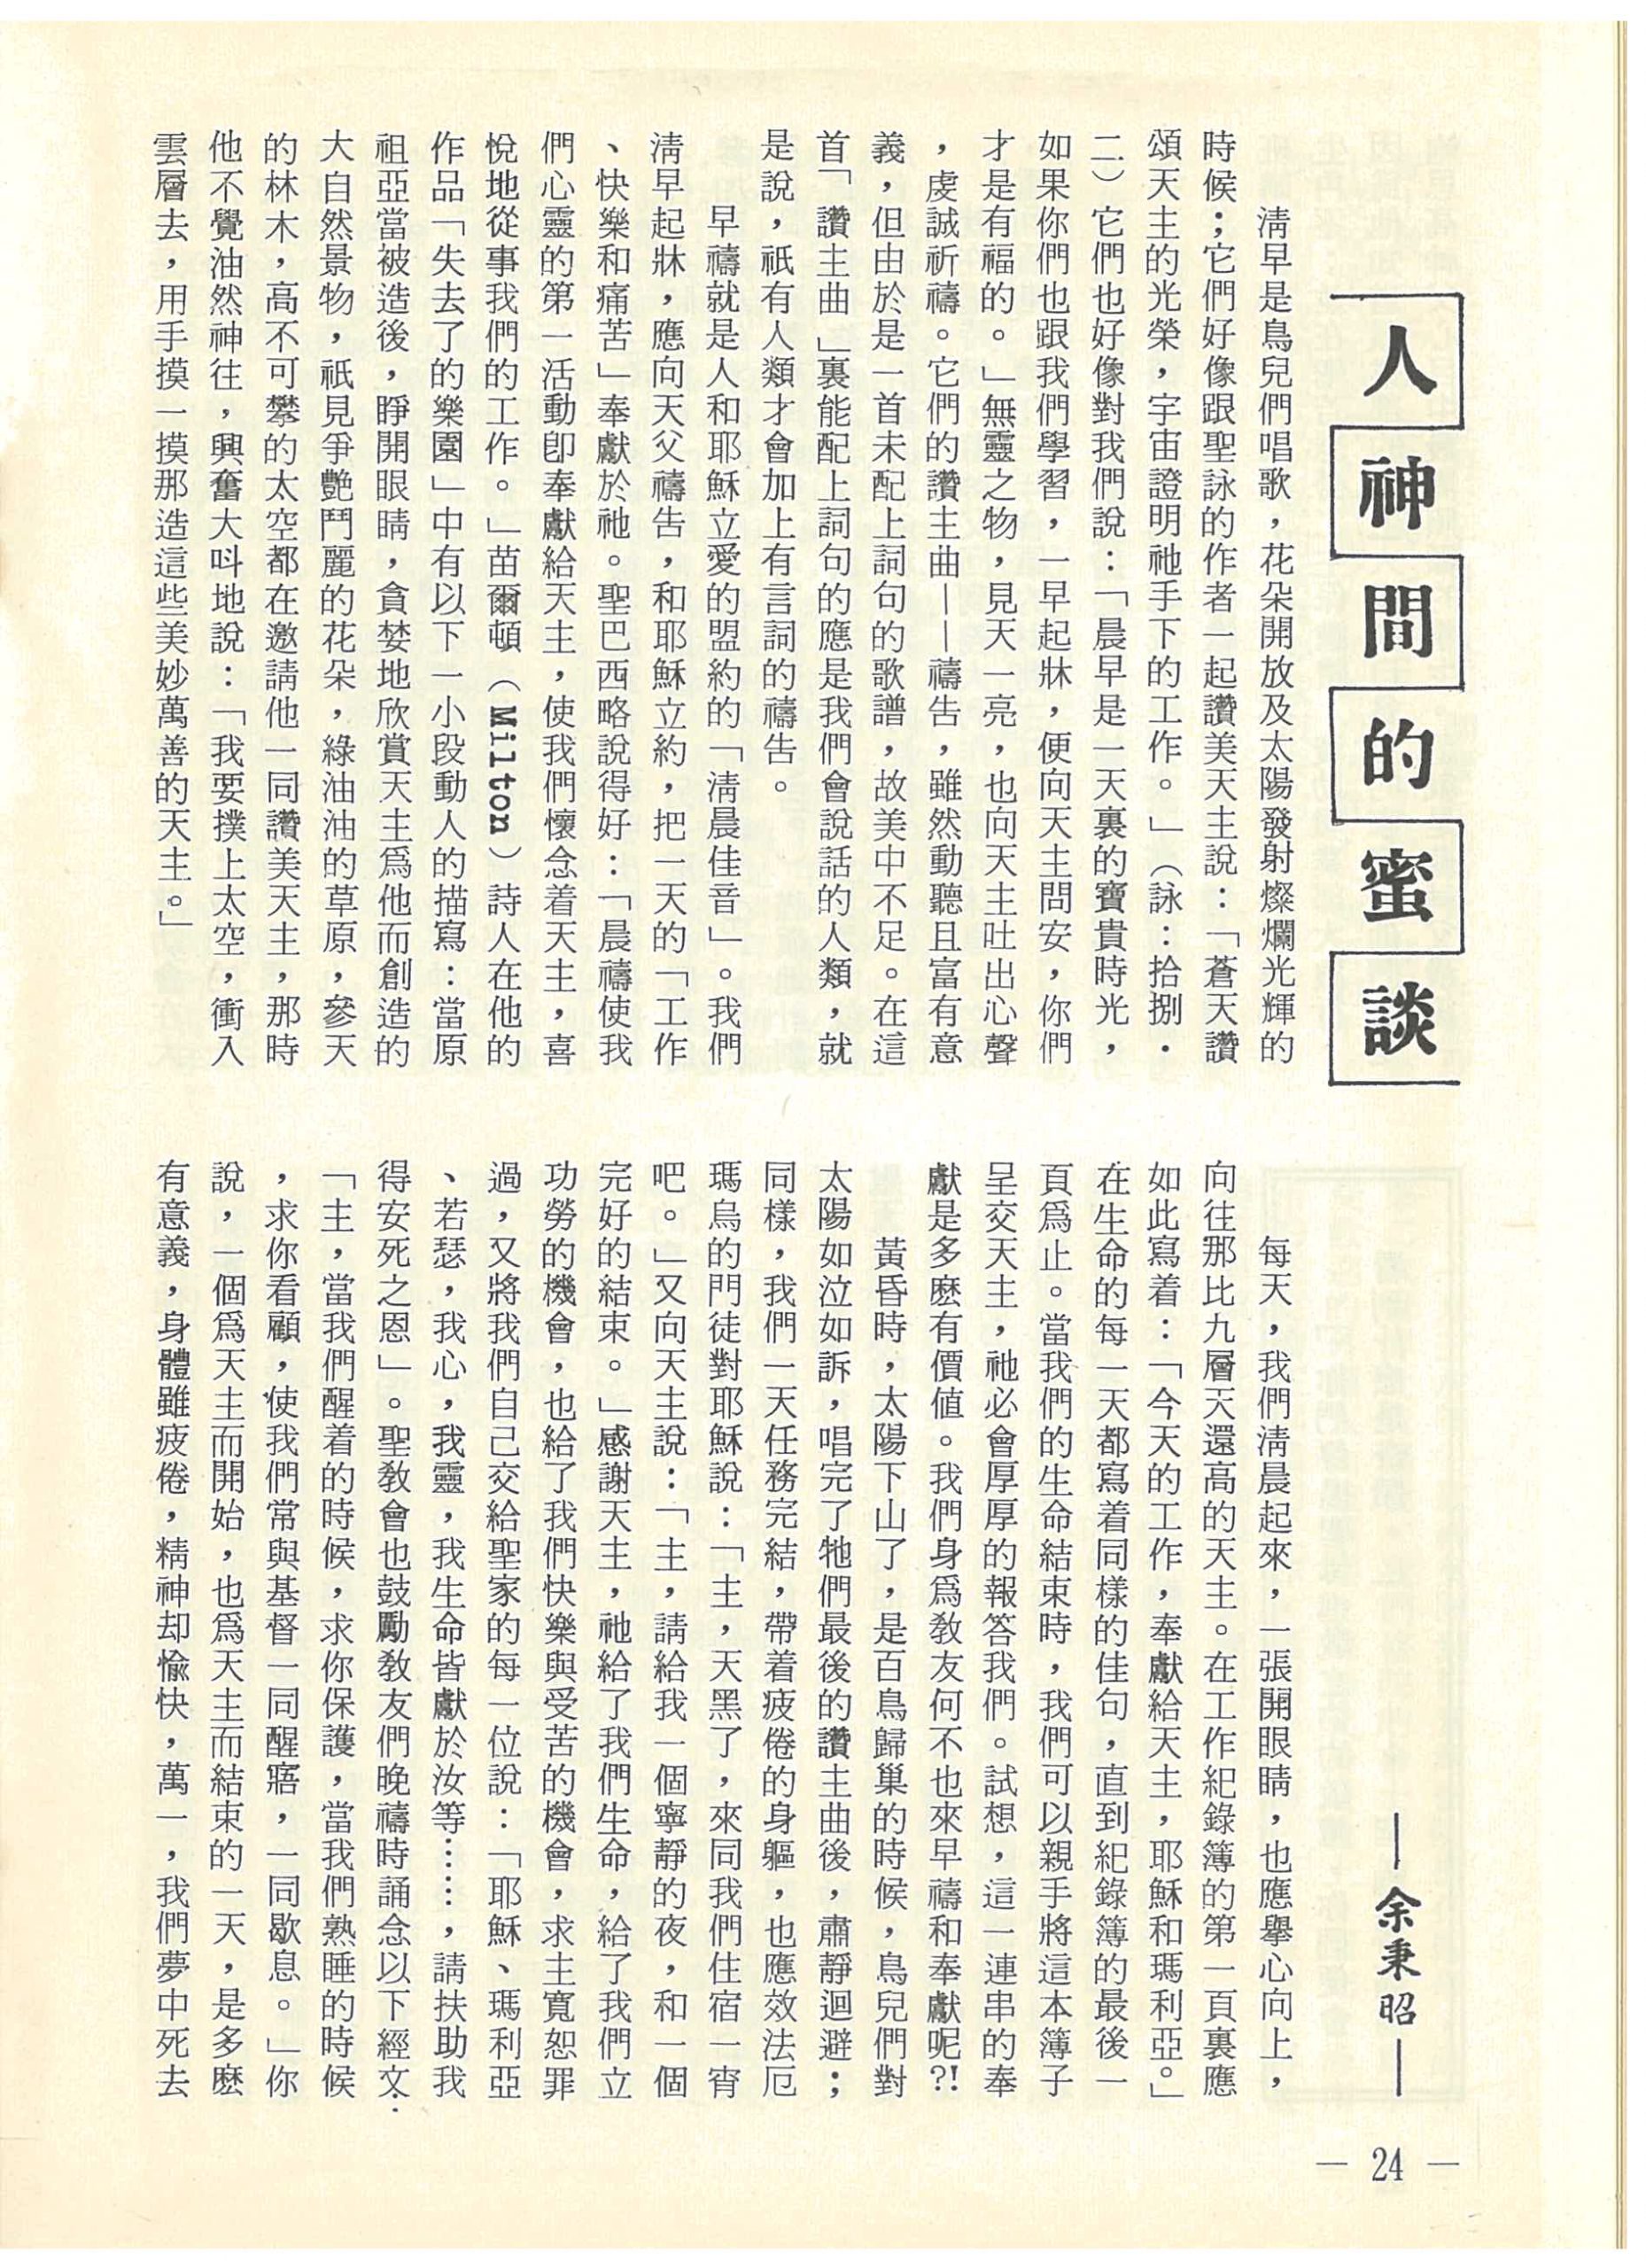 人神間的蜜談
—余秉昭—
清早是鳥兒們唱歌，花朵開放及太陽發射燦爛光輝的
時候；它們好像跟聖詠的作者一起讚美天主說：「蒼天讚
頌天主的光榮，宇宙證明祂手下的工作。」（詠：拾捌．
二）它們也好像對我們說：「晨早是一天裏的寶貴時光，
如果你們也跟我們學習，一早起牀，便向天主問安，你們
才是有福的。」無靈之物，見天一亮，也向天主吐出心聲
，虔誠祈禱。它們的讚主曲——禱告，雖然動聽且富有意
義，但由於是一首未配上詞句的歌譜，故美中不足。在這
首「讚主曲」裏能配上詞句的應是我們會說話的人類，就
是說，祇有人類才會加上有言詞的禱告。
早禱就是人和耶穌立愛的盟約的「清晨佳音」。我們
清早起牀，應向天父禱告，和耶穌立約，把一天的「工作
、快樂和痛苦」奉獻於祂。聖巴西略說得好：「晨禱使我
們心靈的第一活動卽奉獻給天主，使我們懷念着天主，喜
悅地從事我們的工作。」苗爾頓（Milton）詩人在他的
作品「失去了的樂園」中有以下一小段動人的描寫：當原
祖亞當被造後，睜開眼睛，貪婪地欣賞天主爲他而創造的
大自然景物，祇見爭艷鬥麗的花朵，綠油油的草原，參天
的林木，高不可攀的太空都在邀請他一同讚美天主，那時
他不覺油然神往，興奮大呌地說：「我要撲上太空，衝入
雲層去，用手摸一摸那造這些美妙萬善的天主。」
每天，我們清晨起來，一張開眼睛，也應擧心向上，
向往那比九層天還高的天主。在工作紀錄簿的第一頁裏應
如此寫着：「今天的工作，奉獻給天主，耶穌和瑪利亞。」
在生命的每一天都寫着同樣的佳句，直到紀錄簿的最後一
頁爲止。當我們的生命結束時，我們可以親手將這本簿子
呈交天主，祂必會厚厚的報答我們。試想，這一連串的奉
獻是多麽有價值。我們身爲敎友何不也來早禱和奉獻呢?!
黃昏時，太陽下山了，是百鳥歸巢的時候，鳥兒們對
太陽如泣如訴，唱完了牠們最後的讚主曲後，肅靜迴避；
同樣，我們一天任務完結，帶着疲倦的身軀，也應效法厄
瑪烏的門徒對耶穌說：「主，天黑了，來同我們住宿一宵
吧。」又向天主說：「主，請給我一個寧靜的夜，和一個
完好的結束。」感謝天主，祂給了我們生命，給了我們立
功勞的機會，也給了我們快樂與受苦的機會，求主寬恕罪
過，又將我們自己交給聖家的每一位說：「耶穌、瑪利亞
、若瑟，我心，我靈，我生命皆獻於汝等……，請扶助我
得安死之恩」。聖敎會也鼓勵敎友們晚禱時誦念以下經文：
「主，當我們醒着的時候，求你保護，當我們熟睡的時候
，求你看顧，使我們常與基督一同醒寤，一同歇息。」你
說，一個爲天主而開始，也爲天主而結束的一天，是多麽
有意義，身體雖疲倦，精神却愉快，萬一，我們夢中死去
— 24 —